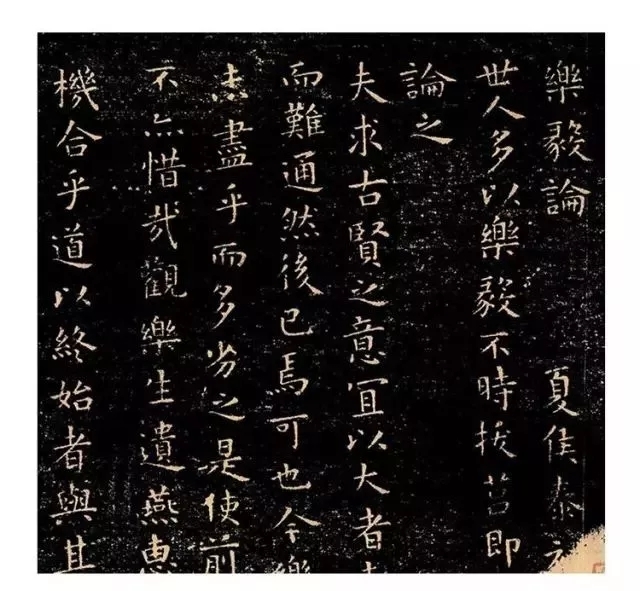 樂毅論 夏侯泰
世人多以樂毅不時拔莒即
論之
夫求古賢之意宜以大者
而難通然後已焉可也今樂
未盡乎而多劣之是使前
不亦惜哉觀樂生遺燕惠
機合乎道以終始者與其